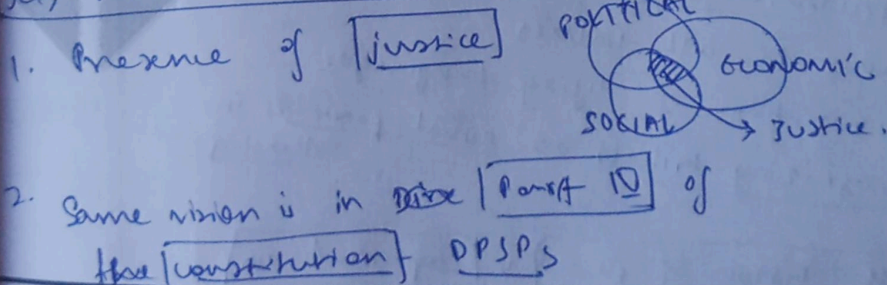 POLITICAL
1. Presence of justice
Economic
SOCIAL
Justice.
2. Same vision is in Part IV of
the constitution DPSPs